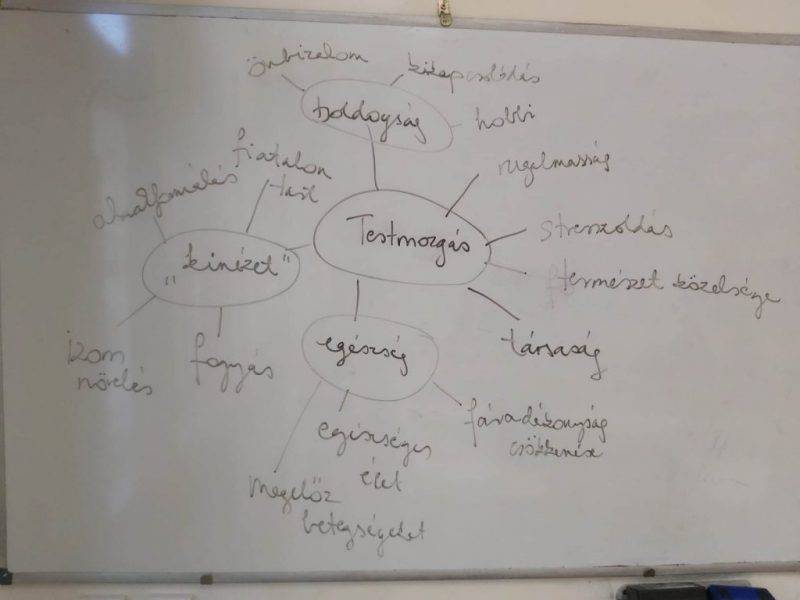 önbizalom
kikapcsolódás
boldogság
hobbi
rugalmasság
fiatalon
tart
alakformálás
Testmozgás
stresszoldás
"kinézet"
természet közelsége
izom
növelés
fogyás
egészség
társaság
fáradékonyság
csökkenése
egészséges
élet
megelőz
betegségeket